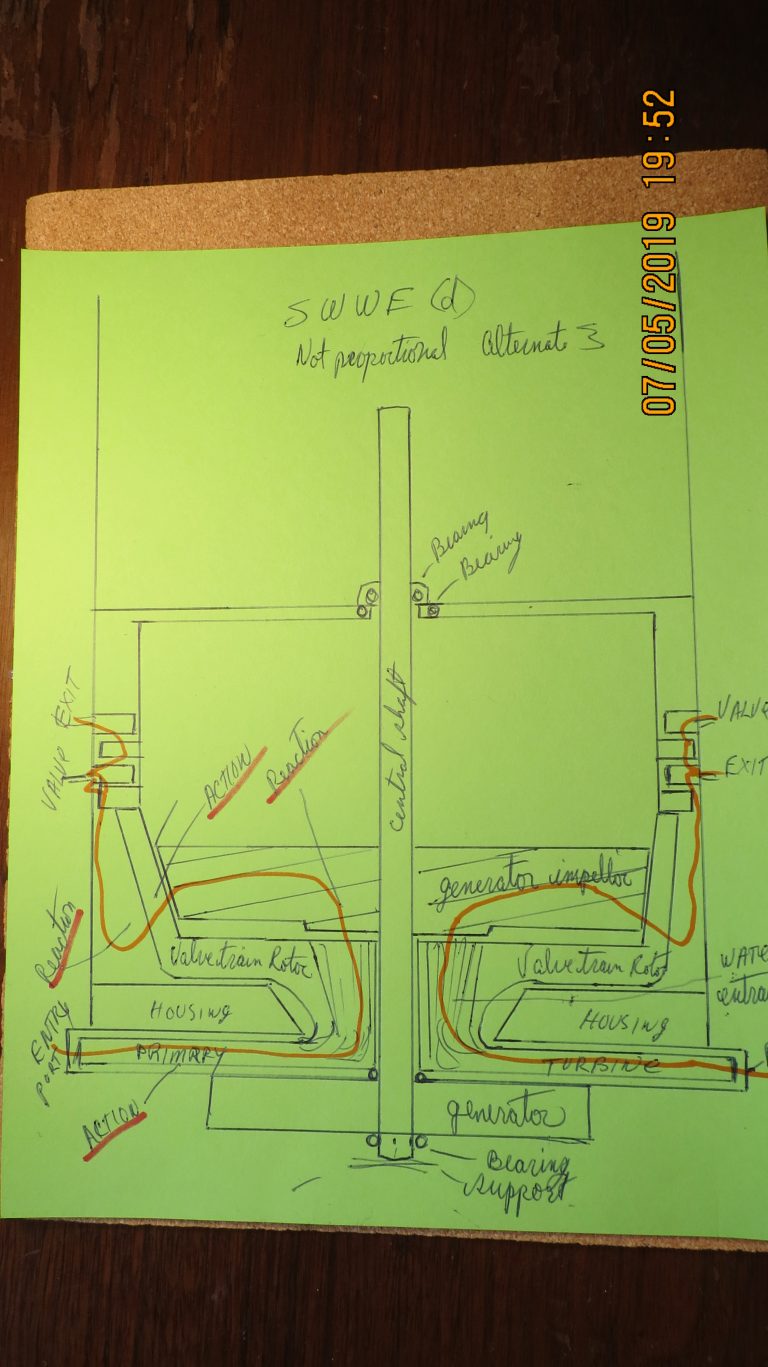 07/05/2019 19:52
SWWE (d)
Not proportional Alternate
Bearing
Bearing
central shaft
VALVE EXIT
VALVE
VALVE
EXIT
ACTION
Reaction
generator impellor
Reaction
Valvetrain Rotor
Valvetrain Rotor
HOUSING
HOUSING
ENTRY
PORT
PRIMARY
TURBINE
ACTION
generator
Bearing
support